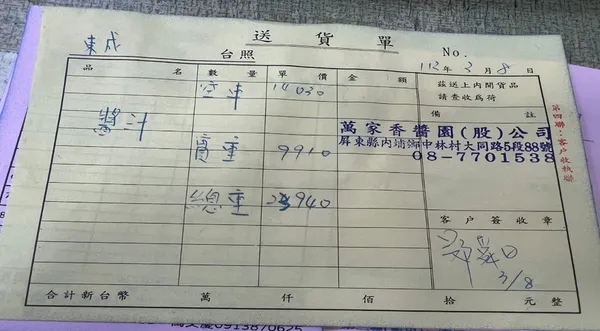 送貨單
東成 台照 No.
112年3月8日
品名 數量 單價 金額
茲送上內開貨品
請查收為荷
備註
空車 14030
醬汁
實重 9910
總重 23940
萬家香醬園(股)公司
屏東縣內埔鄉中林村大同路5段88號
08-7701538
第四聯:客戶收執聯
客戶簽收章
3/8
合計新台幣 萬 仟 佰 拾 元整
0913870625